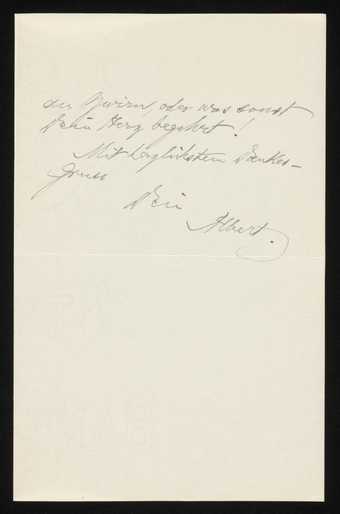 der Zwirn, oder was sonst
Dein Herz begehrt!
Mit herzlichsten Dankes-
gruss
Dein
Albert.